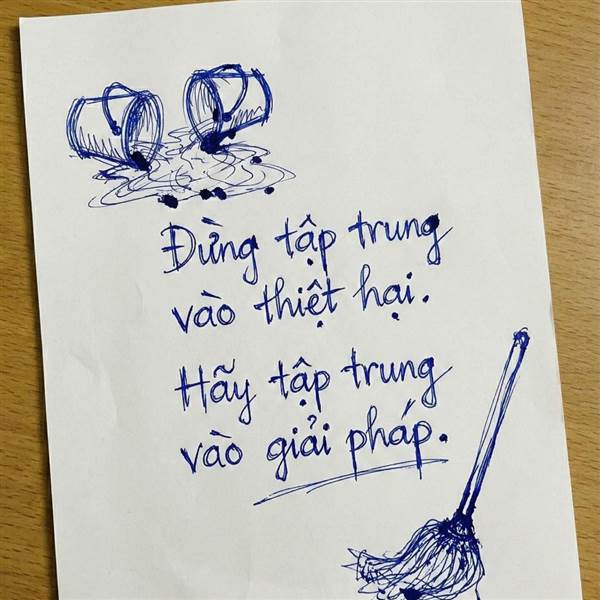 Đừng tập trung
vào thiệt hại.
Hãy tập trung
vào giải pháp.